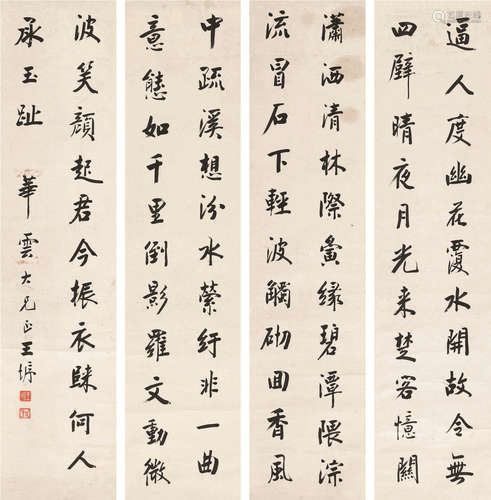 逼人度幽花覆水開故令無
四壁晴夜月光来楚客憶關
瀟洒清林際夤緣碧潭隈淙
流冒石下輕波觸砌回香風
中疏溪想汾水縈紆非一曲
意態如千里倒影羅文動微
波笑顔起君今振衣歸何人
承玉趾 華雲大兄正 王